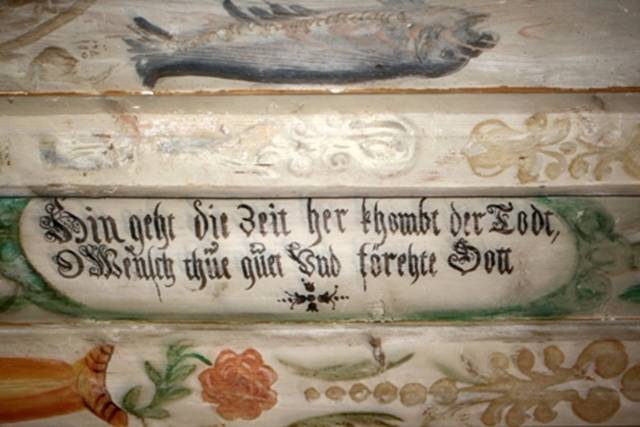 Hin geht die Zeit her khombt der Todt,
O Mensch thue guet Vnd förchte Gott